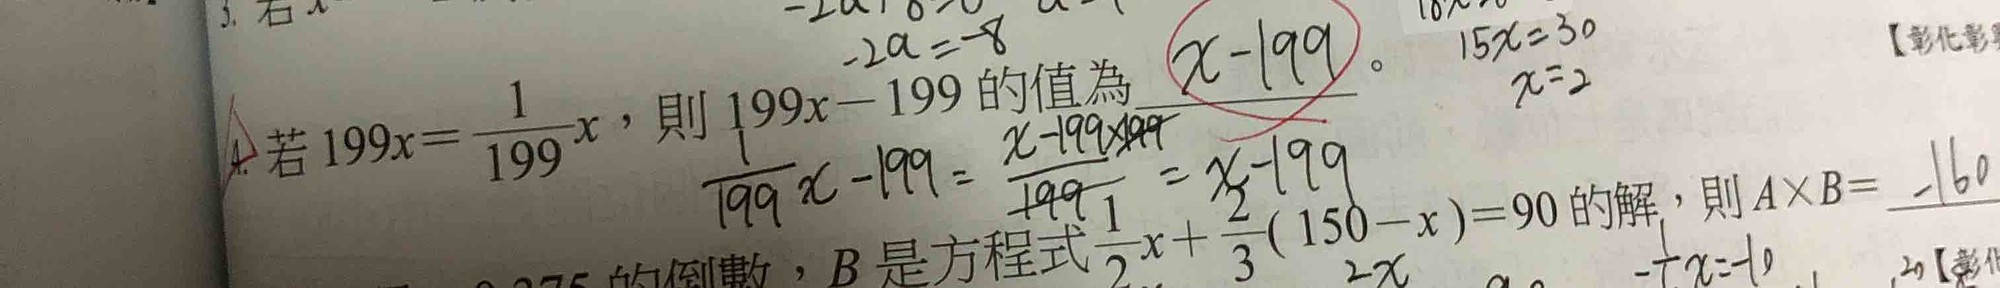 3. 若 x
-2a = -8
15x = 30
x = 2
【彰化彰
4. 若 199x = \frac{1}{199}x，則 199x－199 的值為 x-199 。
\frac{1}{199}x - 199 = \frac{x-199×199}{199} = x-199
B 是方程式 \frac{1}{2}x + \frac{2}{3}( 150－x )=90 的解，則 A×B= -160
的倒數，
2x
x = -10
【彰化